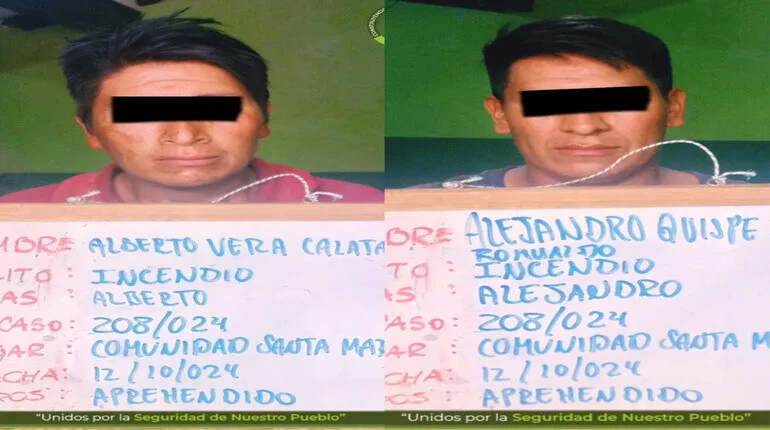 MBRE ALBERTO VERA CALATA
LITO: INCENDIO
AS ALBERTO
CASO: 208/024
GAR : COMUNIDAD SANTA MA
CHA: 12/10/024
POS: APREHENDIDO
"Unidos por la Seguridad de Nuestro Pueblo"
DRE ALEJANDRO QUISPE
ROMUALDO
TO: INCENDIO
AS ALEJANDRO
CASO: 208/024
GAR : COMUNIDAD SANTA M
CHA: 12/10/024
POS: APREHENDIDO
"Unidos por la Seguridad de Nuestro Pueblo"